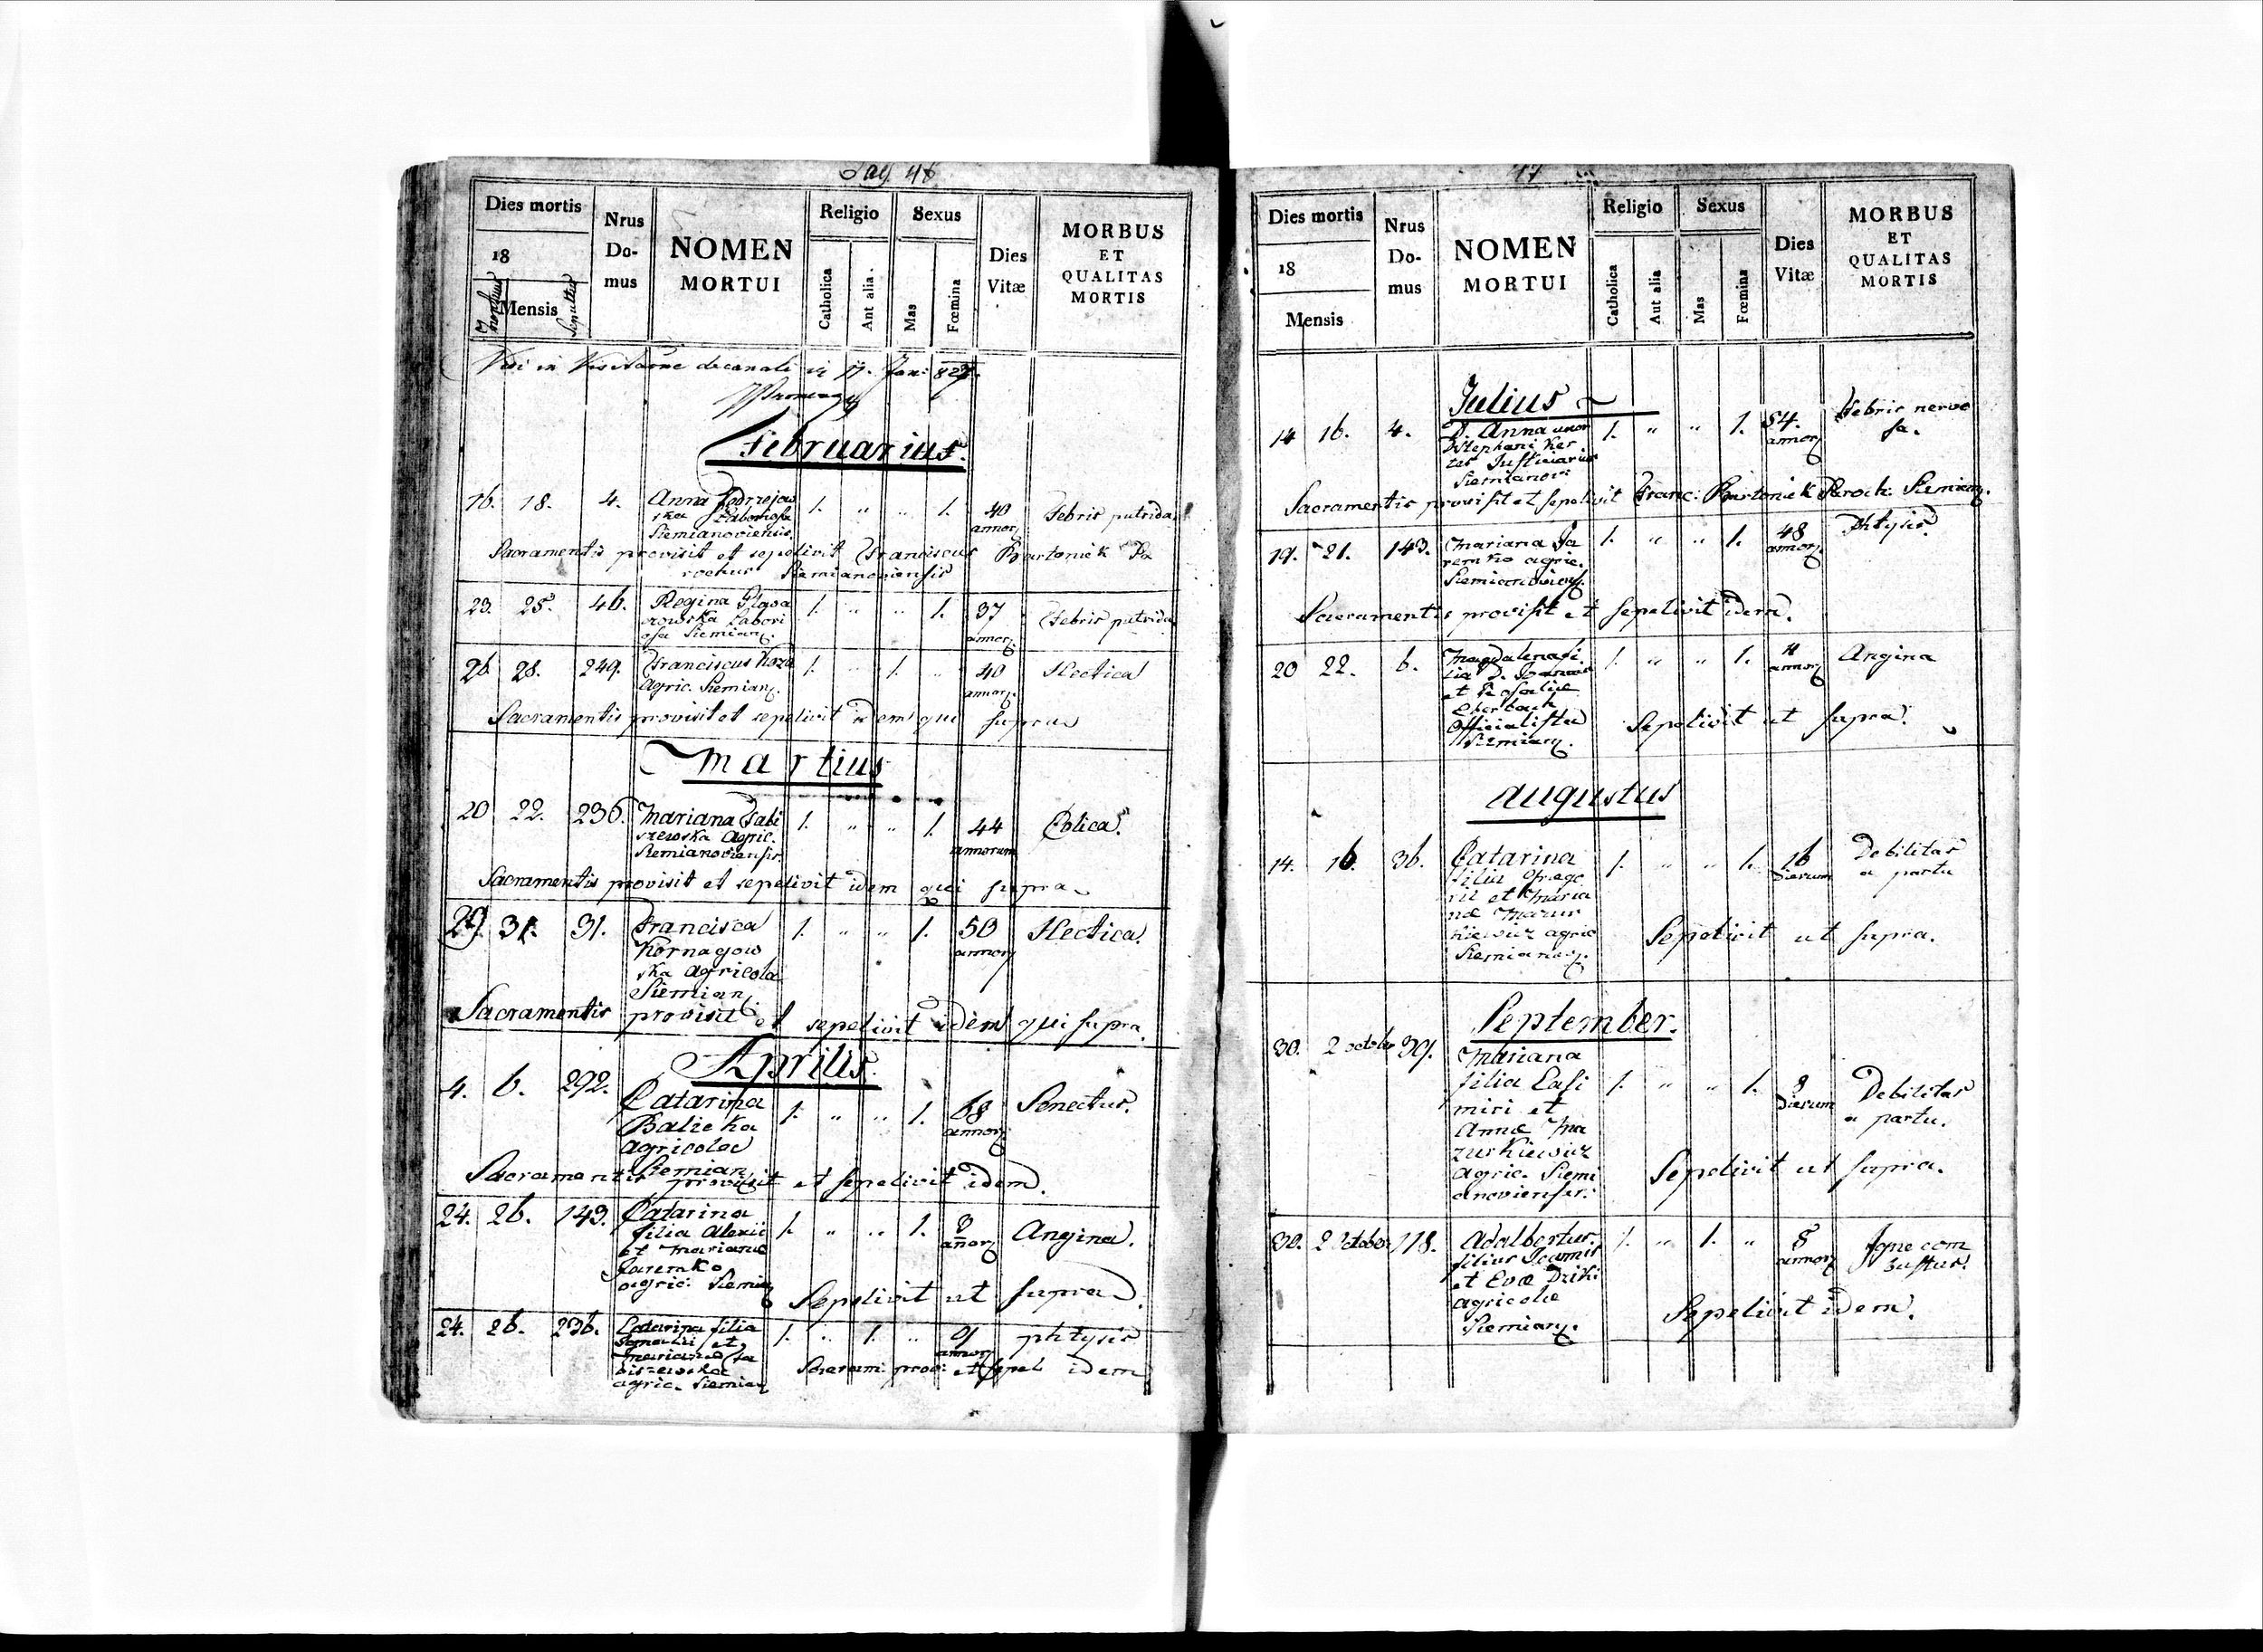 Pag. 46
Dies mortis
18
Mensis
Nrus
Do-
mus
NOMEN
MORTUI
Religio
Catholica
Aut alia.
Sexus
Mas
Fœmina
Dies
Vitæ
MORBUS
ET
QUALITAS
MORTIS
decanali 17. Jan: 827.
Februarius.
16. 18. 4. Anna 1. " " 1. 40 Febris putrida
Siemianoviensis annor
Sacramentis provisit et sepelivit Franciscus Bartoniek Pa
rochus Siemianoviensis
23. 25. 46. Regina 1. " " 1. 37 Febris putrida
rowska Labori
osa Siemian. annor
26. 28. 249. Franciscus Koza 1. " 1. " 40 Hectica
Agric. Siemian. annor.
Sacramentis provisit et sepelivit idem qui supra
Martius
20 22. 236. Mariana Fabi 1. " " 1. 44 Colica.
szewska Agric. annorum
Siemianoviensis
Sacramentis provisit et sepelivit idem qui supra
29. 31. 31. Francisca 1. " " 1. 50 Hectica.
Kornagow annor
ska agricola
Siemian.
Sacramentis provisit et sepelivit idem qui supra
Aprilis.
4. 6. 292. Catarina 1. " " 1. 68 Senectus.
Balicka annor
agricola
Siemian.
Sacramentis provisit et sepelivit idem.
24. 26. 143. Catarina 1. " " 1. 8 Angina.
filia Alexii añor
et Marianae
Jaremko
agric: Siemian
Sepelivit ut supra
24. 26. 236. Catarina filia 1. " 1. " 9 phtysis
et annor
Mariana Fa
biszewska
agric. Siemian
Sacram: prov: et sepel idem
47
Dies mortis
18
Mensis
Nrus
Do-
mus
NOMEN
MORTUI
Religio
Catholica
Aut alia
Sexus
Mas
Fœmina
Dies
Vitæ
MORBUS
ET
QUALITAS
MORTIS
Julius
14 16. 4. D. Anna uxor 1. " " 1. 54. Febris nervo
Stephani Ker annor sa.
ter Justiciarius
Sacramentis provisit et sepelivit Franc: Bartoniek Paroch: Siemian.
19. 21. 143. Mariana Ja 1. " " 1. 48 Phtysis
remko agric. annor
Sacramentis provisit et sepelivit idem.
20 22. 6. Magdalena fi 1. " " 1. 4 Angina
lia D. Joannis annor
et Rosaliæ
Eberbach
Officialista
Siemian.
Sepelivit ut supra.
Augustus
14. 16. 36. Catarina 1. " " 1. 16 Debilitas
filia Grego dierum a partu
rii et Maria
næ Mazur
kiewicz agric
Sepelivit ut supra.
September.
30. 2 octob 39. Mariana
filia Casi 1. " " 1. 8 Debilitas
miri et dierum a partu.
Annæ Ma
zurkiewicz
agric. Siemi
anoviensis.
Sepelivit ut supra.
30. 2 October 118. Adalbertus. 1. " 1. " 8 Igne com
filius Joannis annor bustus.
et Evæ Dziki
agricolæ
Siemian.
Sepelivit idem.